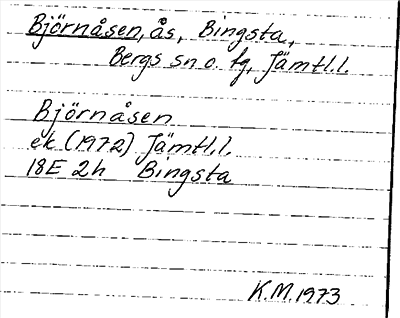 Björnåsen, ås, Bingsta,
Bergs sn o. tg, Jämtl.l.
Björnåsen
ek (1972) Jämtl.l.
18E 2h Bingsta
K.M. 1973